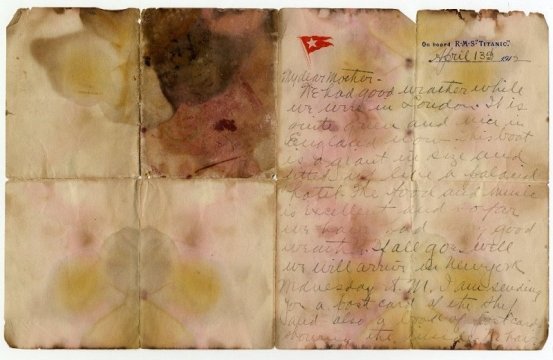 On board R·M·S "TITANIC".
April 13th 1912
My dear Mother -
We had good weather while
we were in London. It is
quite green and nice in
England now. This boat
is a giant in size and
fitted up like a palacial
hotel. The food and music
is excellent and so far
we have had good
weather. If all goes well
we will arrive in New York
Wednesday A.M. I am sending
you a post card of the ship
and also a book of postcards
showing the inside